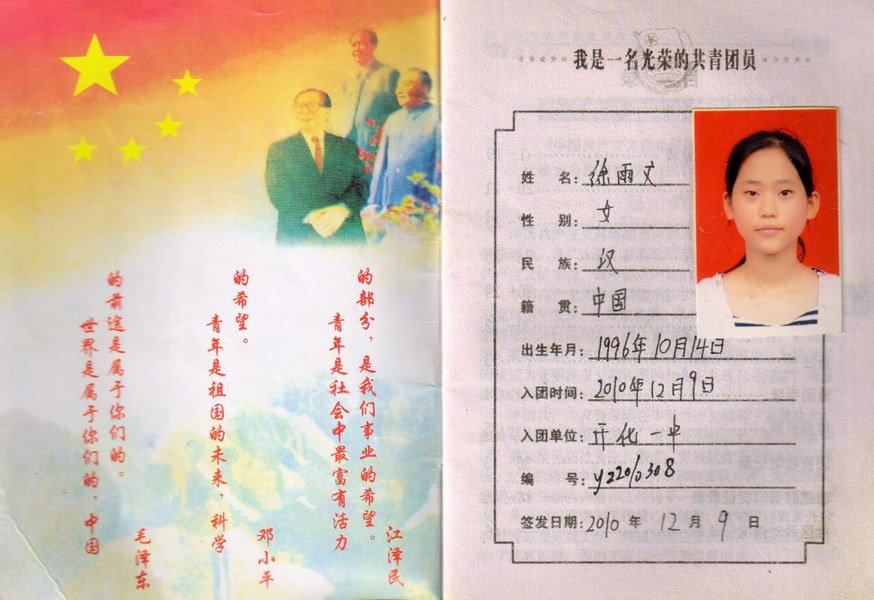 世界是属于你们的，中国
的前途是属于你们的。
毛泽东
青年是祖国的未来，科学
的希望。
邓小平
青年是社会中最富有活力
的部分，是我们事业的希望。
江泽民
我是一名光荣的共青团员
姓 名：徐雨文
性 别：女
民 族：汉
籍 贯：中国
出生年月：1996年10月14日
入团时间：2010年12月9日
入团单位：开化一中
编 号：
签发日期：2010 年 12 月 9 日